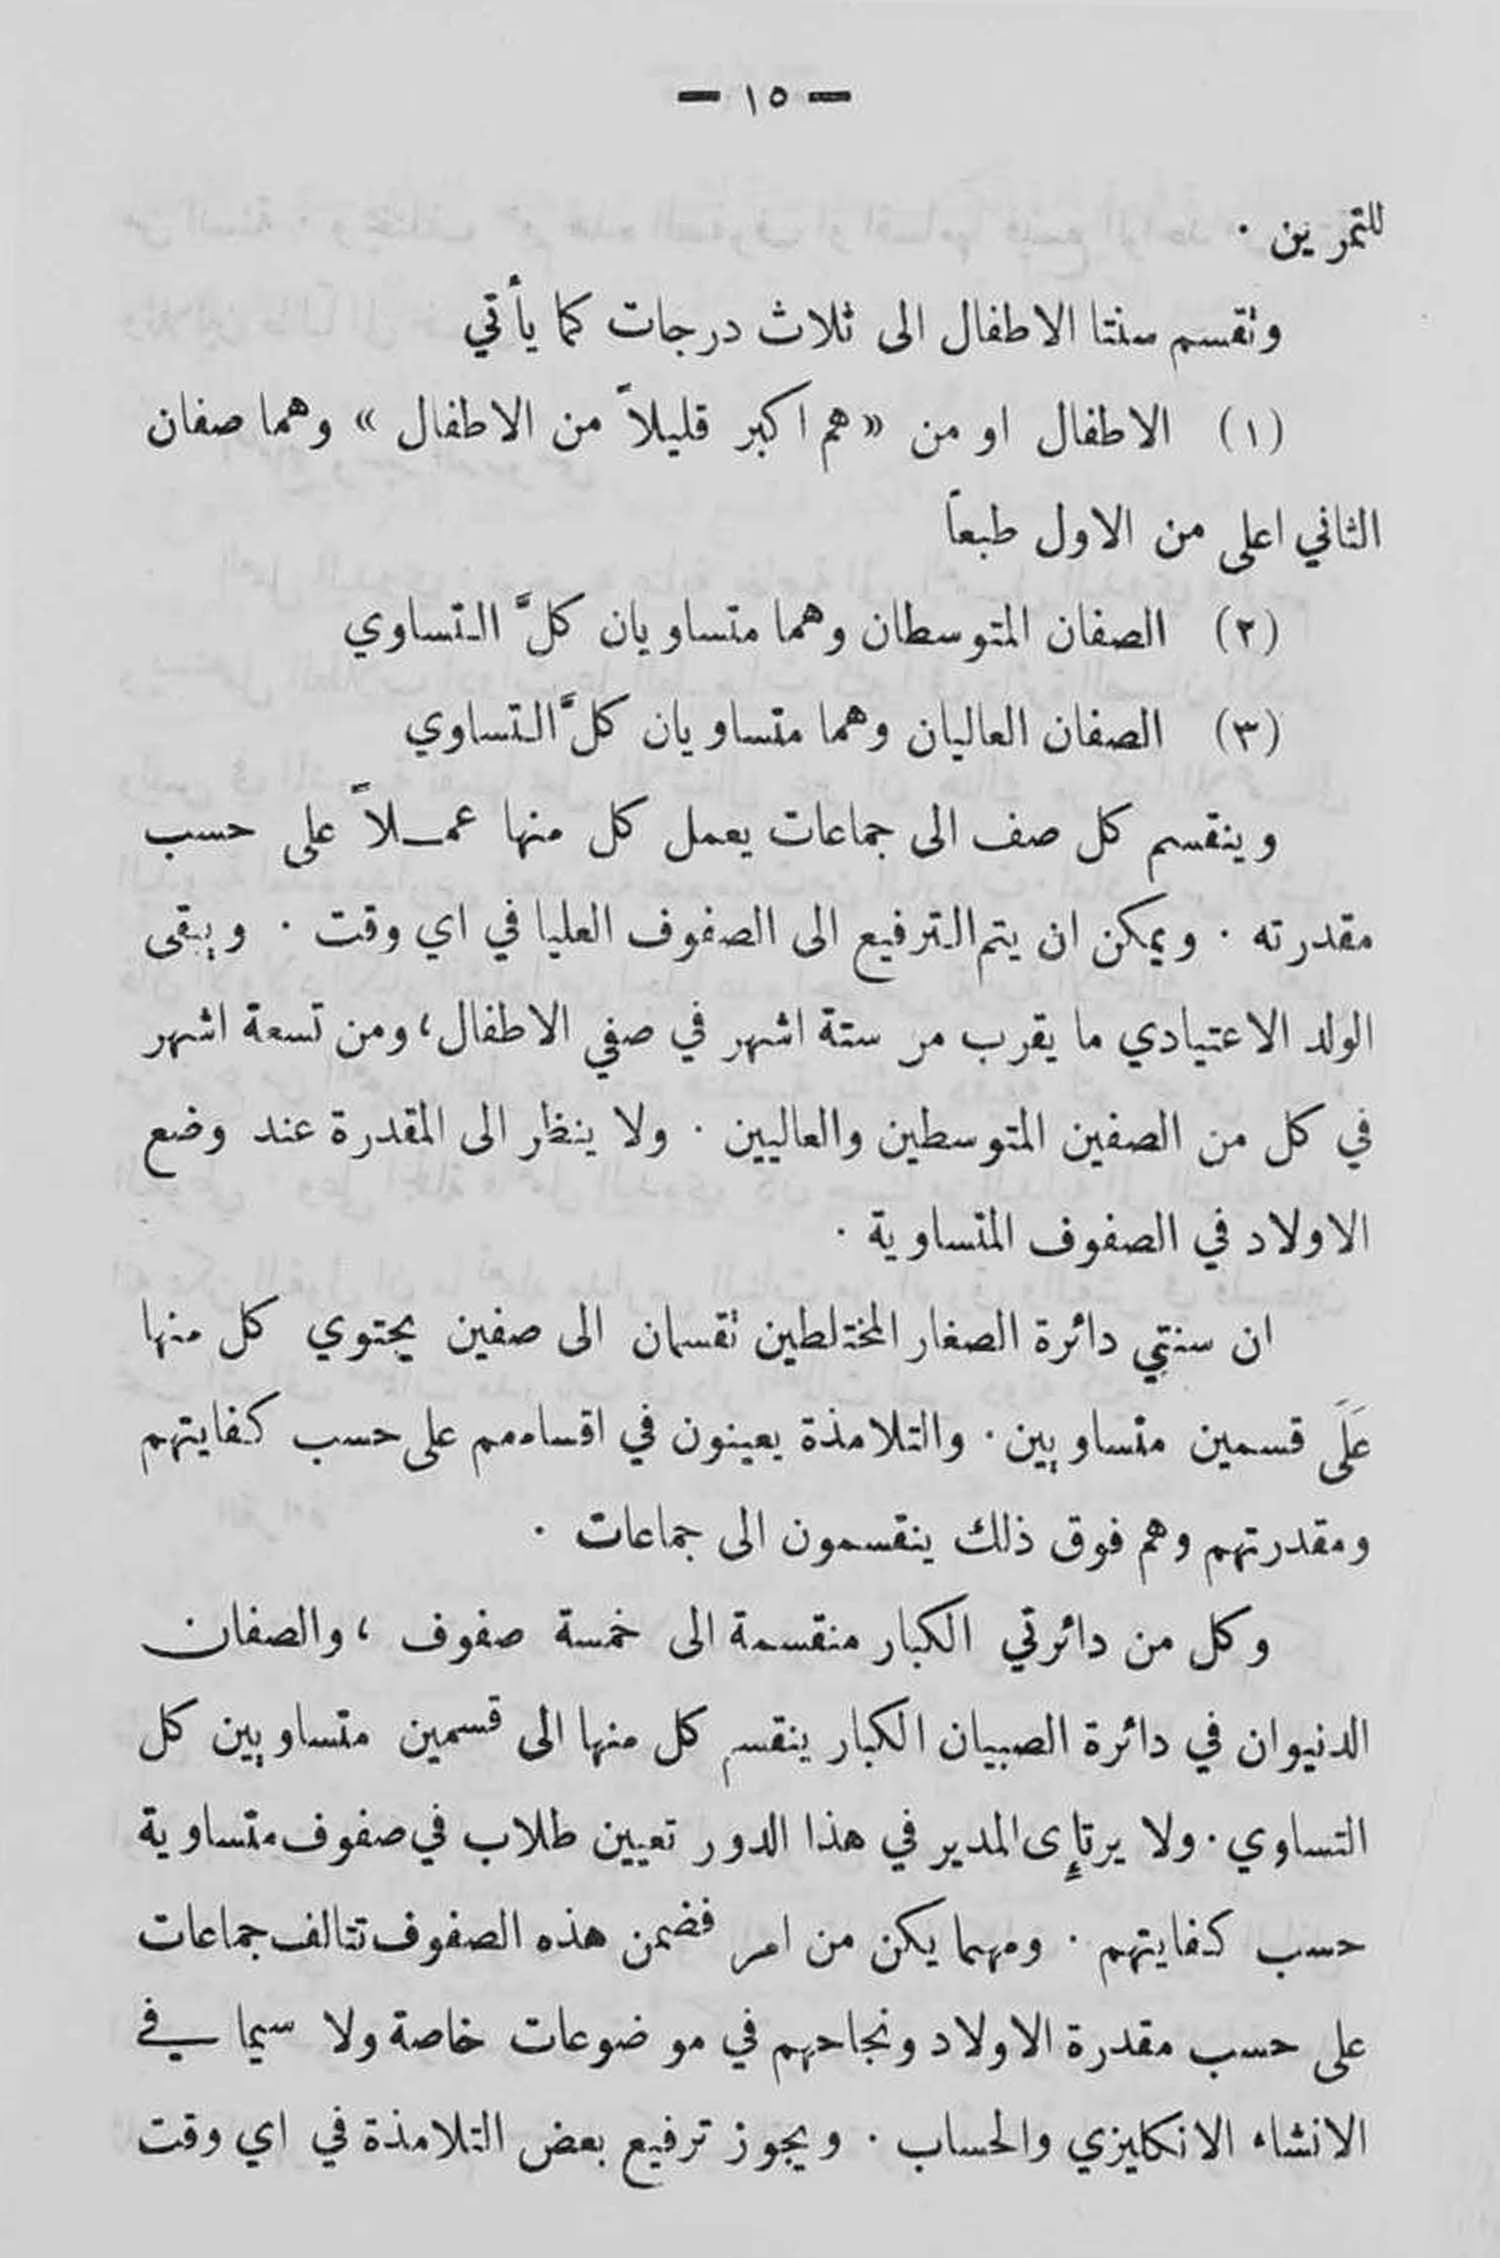 — ١٥ —
للتمرين .
وتقسم سنتا الاطفال الى ثلاث درجات كما يأتي
(١) الاطفال او من « هم اكبر قليلاً من الاطفال » وهما صفان
الثاني اعلى من الاول طبعاً
(٢) الصفان المتوسطان وهما متساويان كلَّ التساوي
(٣) الصفان العاليان وهما متساويان كلَّ التساوي
وينقسم كل صف الى جماعات يعمل كل منها عمـلاً على حسب
مقدرته . ويمكن ان يتم الترفيع الى الصفوف العليا في اي وقت . ويبقى
الولد الاعتيادي ما يقرب من ستة اشهر في صفي الاطفال ، ومن تسعة اشهر
في كل من الصفين المتوسطين والعاليين . ولا ينظر الى المقدرة عند وضع
الاولاد في الصفوف المتساوية .
ان سنتي دائرة الصغار المختلطين تقسمان الى صفين يحتوي كل منها
عَلَى قسمين متساويين . والتلامذة يعينون في اقسامهم على حسب كفايتهم
ومقدرتهم وهم فوق ذلك ينقسمون الى جماعات .
وكل من دائرتي الكبار منقسمة الى خمسة صفوف ، والصفان
الدنيوان في دائرة الصبيان الكبار ينقسم كل منها الى قسمين متساويين كل
التساوي . ولا يرتإى المدير في هذا الدور تعيين طلاب في صفوف متساوية
حسب كفايتهم . ومهما يكن من امر فضمن هذه الصفوف تتالف جماعات
على حسب مقدرة الاولاد ونجاحهم في موضوعات خاصة ولا سيما في
الانشاء الانكليزي والحساب . ويجوز ترفيع بعض التلامذة في اي وقت